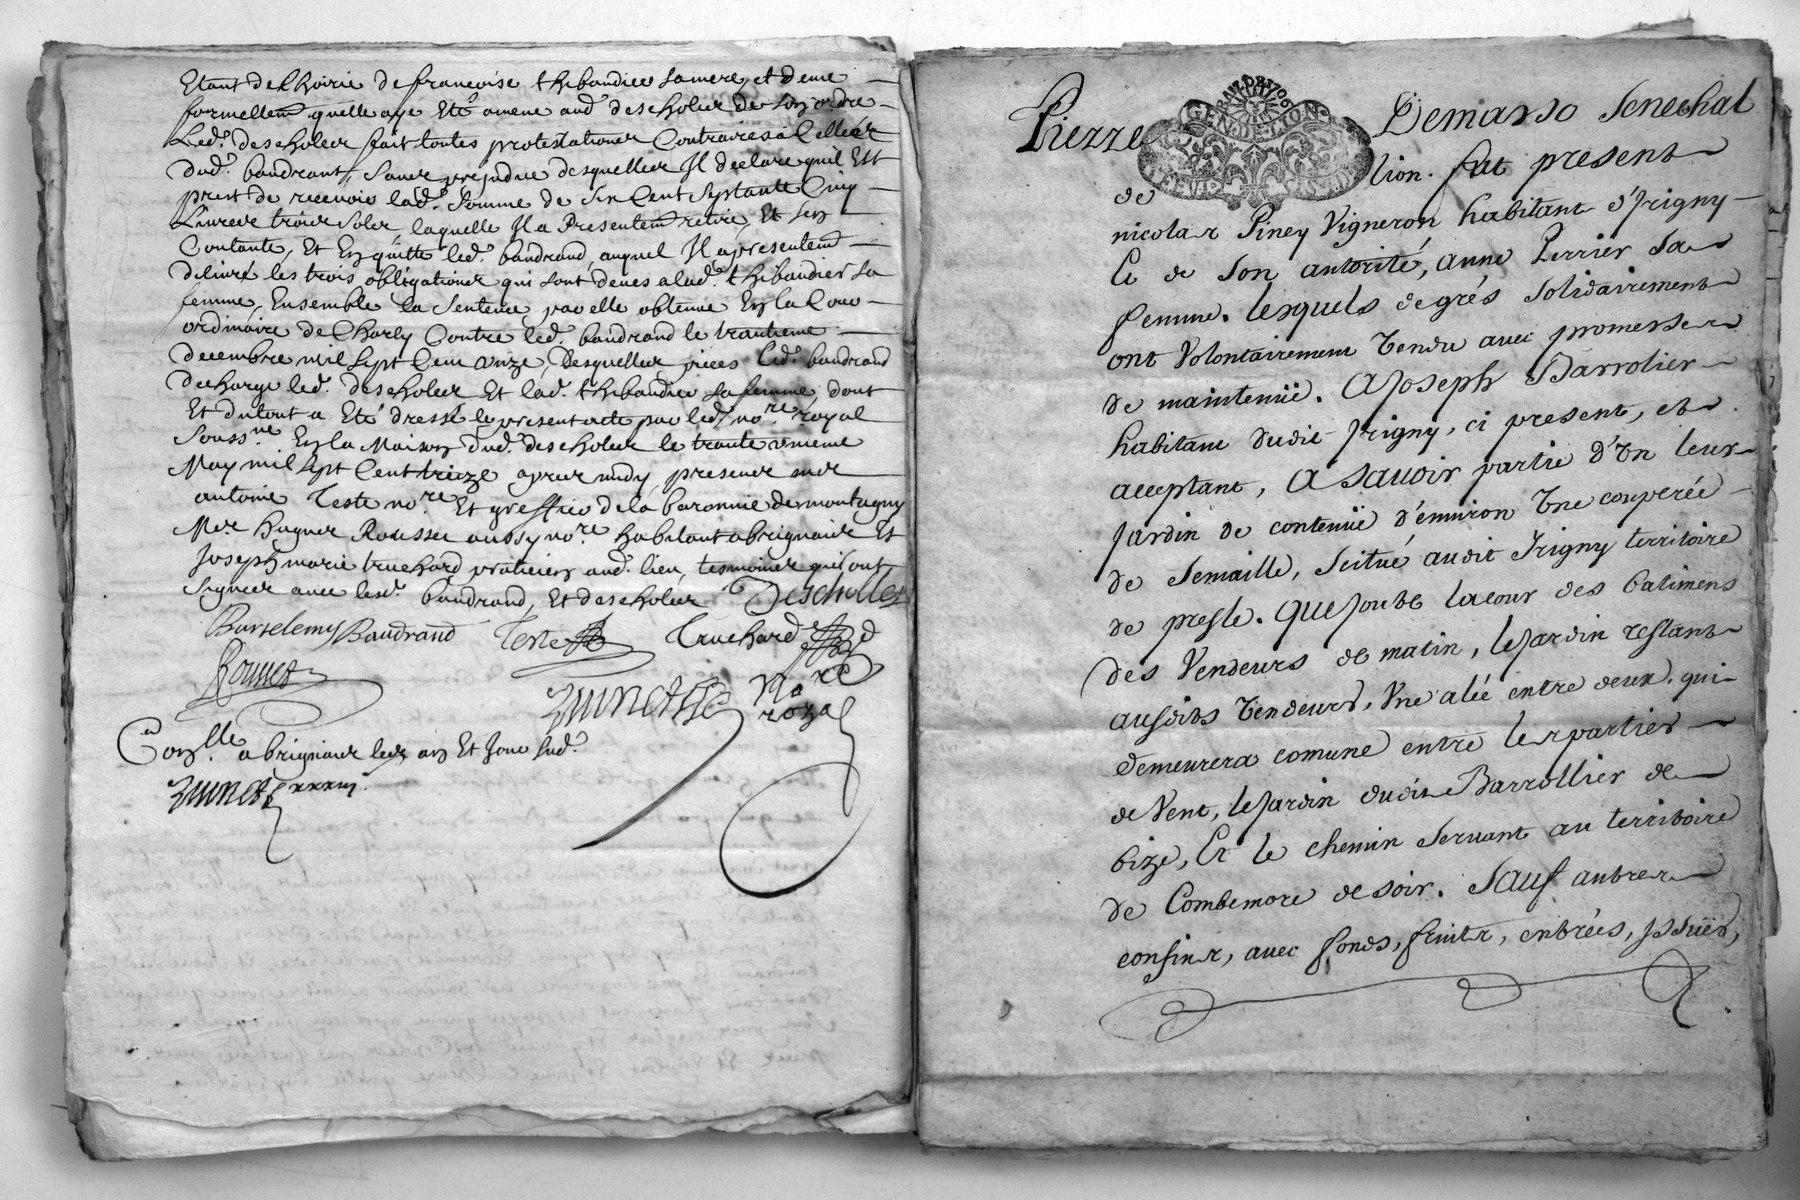 Etant de lhoirie de francoise thibaudier sa mere, et denie
formellem.t quelle aye Eté amene aud.t descholier de son ordre
Led.t descholier fait toutes protestations Contraires a Celles
dud.t baudrant, sans prejudice desquelles Il declare quil Est
prest de recevoir lad.te Somme de Six Cent Septante Cinq
Liures trois Sols, laquelle Il a Presentem.t retiré, Et sen
Contante, Et En quitte led.t baudrand, auquel Il a presentem.t
deliuré les trois obligations qui sont deues a lad.te thibaudier sa
femme, Ensemble la Sentence par elle obtenue En la Cour
ordinaire de Charly Contre led.t baudrand le trantieme
decembre mil Sept Cent onze, Desquelles pieces led.t baudrand
decharge led.t descholier Et lad.te thibaudier sa femme, dont
Et du tout a Eté dressé le present acte par led.t no.re royal
Souss.né En la Maison dud.t descholier le trante vnieme
May mil Sept Cent treize apres midy, presens mes
antoine Teste no.re Et greffier de la baronnie de montagny
M.re hugues Rousset aussy no.re habitant a brignais Et
Joseph marie truchard praticien aud.t lieu, tesmoins qui ont
Signés auec lesd.ts baudrand, Et descholier Descholles
Barthelemy Baudrand Teste Truchard
No.re
royal
Con.lle a brignais les an Et Jour sud.t
Pierre Demasso Senechal
GEN.DE.LION
de lion. fut present
nicolas Piney Vigneron habitant d'Irigny
Et de Son autorité, anne Perrier Sa
femme. lesquels de grés Solidairement
ont Volontairement Vendu avec promesse
de maintenüe. A Joseph Barrolier
habitant dudit Irigny, ci present, et
acceptant, A Sauoir partie d'Vn leur
Jardin de contenüe d'enuiron Vne couperée
de Semaille, Scitué audit Irigny territoire
de presle. Que Joute la cour des batimens
des Vendeurs de matin, le Jardin restant
ausdits Vendeurs, Vne alée entre deux. qui
demeurera comune entre les parties
de Vent, le Jardin dudit Barrollier de
bize, Et le chemin Seruant au territoire
de Combemore de soir. Sauf autres
confins, auec fonds, fruits, entrées, Issües,